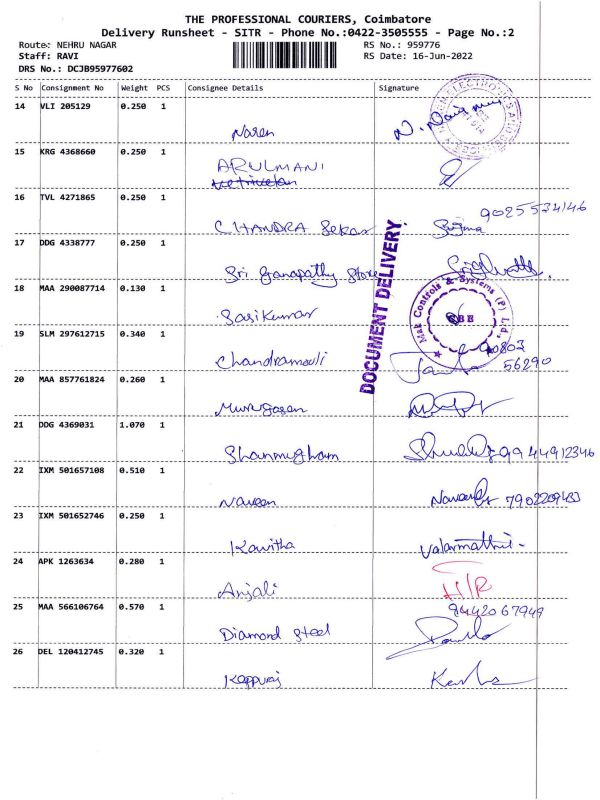 THE PROFESSIONAL COURIERS, Coimbatore
Delivery Runsheet - SITR - Phone No.:0422-3505555 - Page No.:2
Route: NEHRU NAGAR RS No.: 959776
Staff: RAVI RS Date: 16-Jun-2022
DRS No.: DCJB95977602
S No Consignment No Weight PCS Consignee Details Signature
14 VLI 205129 0.250 1
Naren
15 KRG 4368660 0.250 1
ARULMANI
Vetrivelan
16 TVL 4271865 0.250 1
9025534146
CHANDRA Sekar
17 DDG 4338777 0.250 1
Sri Ganapathy Store
DOCUMENT DELIVERY.
18 MAA 290087714 0.130 1
Mak Controls & Systems (P) Ltd.,
Sasikumar
19 SLM 297612715 0.340 1
90803
56290
Chandramouli
20 MAA 857761824 0.260 1
Murugasen
21 DDG 4369031 1.070 1
Shanmugham 9944912346
22 IXM 501657108 0.510 1
Naveen 7902209433
23 IXM 501652746 0.250 1
Kavitha Valarmathi
24 APK 1263634 0.280 1
Anjali H/R
25 MAA 566106764 0.570 1
9442067949
Diamond Steel
26 DEL 120412745 0.320 1
Kappuraj